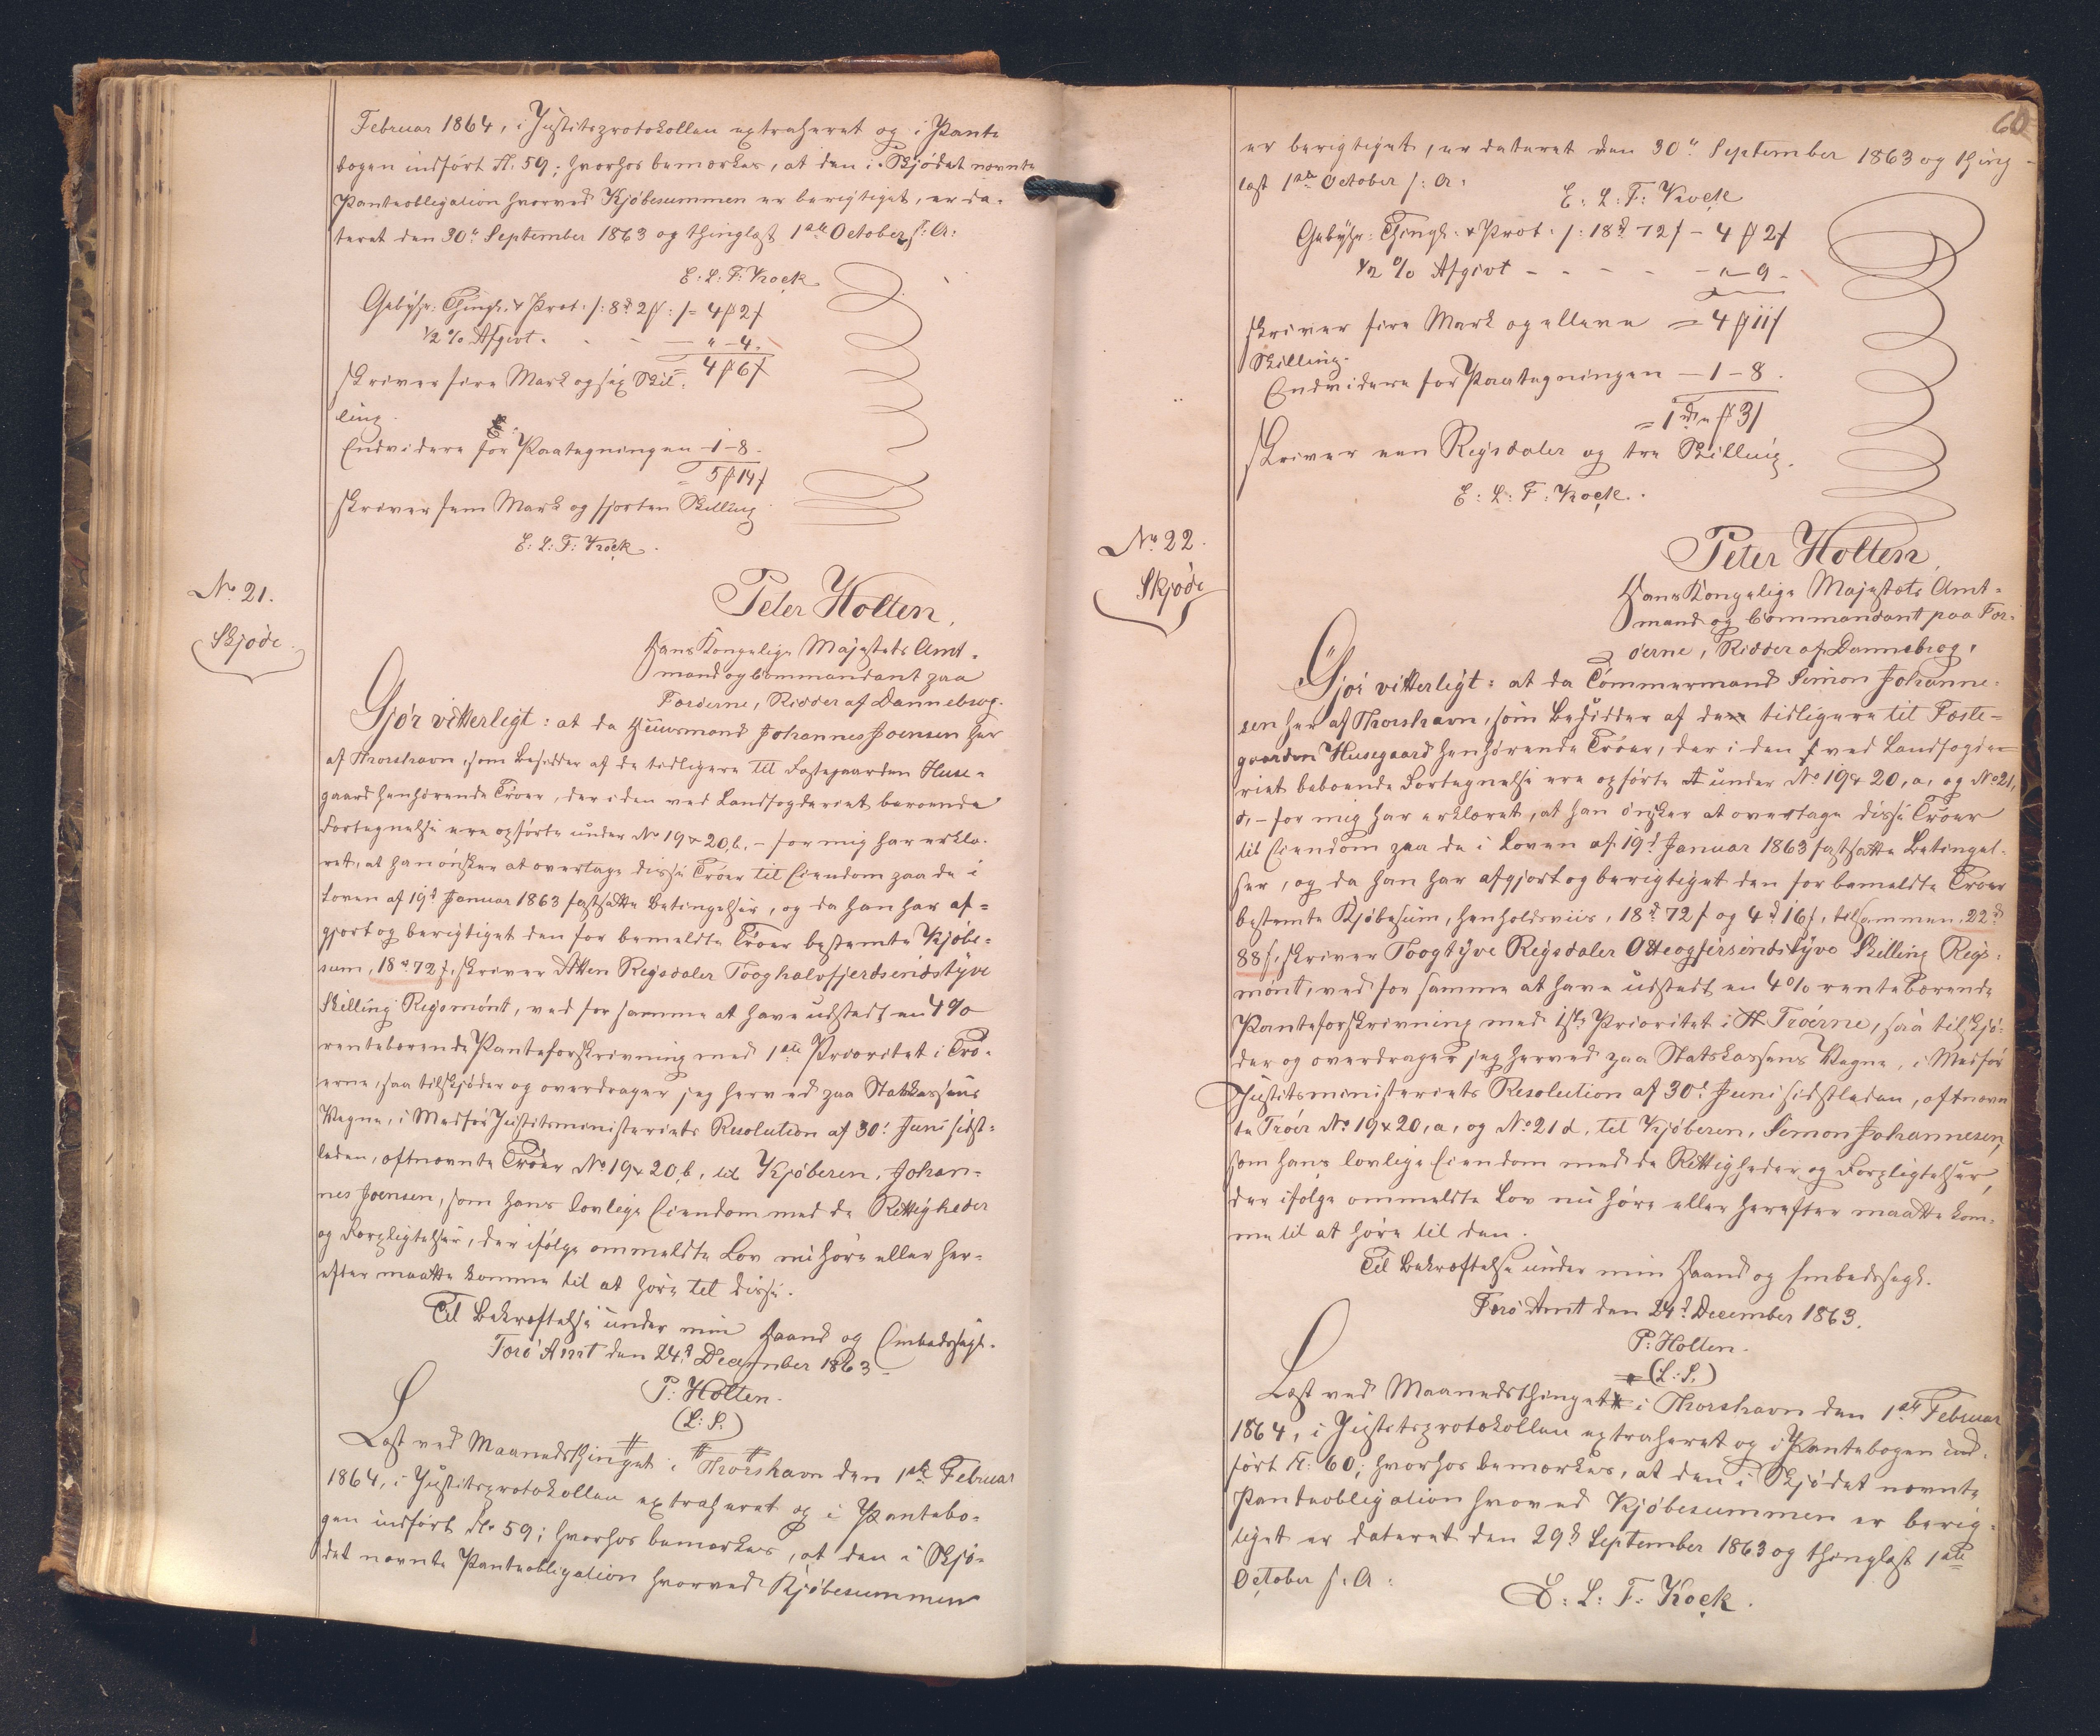 Februar 1864, i Justitsprotokollen extraheret og i Pante
bogen indført fl. 59; hvorhos bemærkes, at den i Skjødet nævnte
Panteobligation hvorved Kjøbesummen er berigtiget, er da-
teret den 30te September 1863 og thinglæst 1ste October s: A:
E: L: F: Kock
Gebyhr: Thingl. & Prot. /: 8 rd 2 ß :/ = 4 ℔ 2 ß
1/2 % Afgivt - - - " - 4.
= 4 ℔ 6 ß
skriver fire Mark og sex Skil-
ling.
Endvidere for Paategningen - 1 - 8.
= 5 ℔ 14 ß
skriver fem Mark og fjorten Skilling
E: L: F: Kock.
No 21.
Skjøde.
Peter Holten,
Hans Kongelige Majestæts Amt-
mand og Commandant paa
Færøerne, Ridder af Dannebrog.
Gjør vitterligt: at da Huusmand Johannes Joensen her
af Thorshavn, som Besidder af de tidligere til Fæstegaarden Huse-
gaard henhørende Trøer, der i den ved Landfogderiet beroende
Fortegnelse ere opførte under No 19 & 20, b, - for mig har erklæ-
ret, at han ønsker at overtage disse Trøer til Eiendom paa de i
Loven af 19d Januar 1863 fastsatte Betingelser, og da han har af-
gjort og berigtiget den for bemeldte Trøer bestemte Kjøbe-
sum, 18 rd 72 ß, skriver Atten Rigsdaler Tooghalvfjerdsindstyve
Skilling Rigsmønt, ved for samme at have udstedt en 4%
rentebærende Panteforskrivning med 1ste Prioritet i Trø-
erne, saa tilskjøder og overdrager jeg herved paa Statskassens
Vegne, i Medfør Justitsministeriets Resolution af 30d Juni sidst-
leden, oftnævnte Trøer No 19 & 20, b, til Kjøberen, Johan-
nes Joensen, som hans lovlige Eiendom med de Rettigheder
og Forpligtelser, der ifølge ommeldte Lov nu høre eller her-
efter maatte komme til at høre til disse.
Til Bekræftelse under min Haand og Embedssegl.
Færø Amt den 24d December 1863.
P: Holten.
(L: S.)
Læst ved Maanedsthinget i Thorshavn den 1ste Februar
1864, i Justitsprotokollen extraheret og i Pantebo-
gen indført fl. 59; hvorhos bemærkes, at den i Skjø-
det nævnte Panteobligation hvorved Kjøbesummen
60
er berigtiget, er dateret den 30te September 1863 og thing-
læst 1ste October s: A:
E: L: F: Kock
Gebyhr: Thingl. & Prot. /: 18 rd 72 ß - 4 ℔ 2 ß
1/2 % Afgivt - - - - - " - 9 -
skriver fire Mark og elleve = 4 ℔ 11 ß
Skilling.
Endvidere for Paategningen - 1 - 8.
= 1 rd " ℔ 3 ß
skriver een Rigsdaler og tre Skilling.
E: L: F: Kock.
No 22.
Skjøde
Peter Holten,
Hans Kongelige Majestæts Amt-
mand og Commandant paa Fær-
øerne, Ridder af Dannebrog,
Gjør vitterligt: at da Tømmermand Simon Johanne-
sen her af Thorshavn, som Besidder af de tidligere til Fæste-
gaarden Husegaard henhørende Trøer, der i den ved Landfogde-
riet beroende Fortegnelse ere opførte under No 19 & 20, a, og No 21,
d, - for mig har erklæret, at han ønsker at overtage disse Trøer
til Eiendom paa de i Loven af 19d Januar 1863 fastsatte Betingel-
ser, og da han har afgjort og berigtiget den for bemeldte Trøer
bestemte Kjøbesum, henholdsviis, 18 rd 72 ß og 4 rd 16 ß, tilsammen, 22 rd
88 ß, skriver Toogtyve Rigsdaler Otteogfirsindstyve Skilling Rigs-
mønt, ved for samme at have udstedt en 4% rentebærende
Panteforskrivning med 1ste Prioritet i Trøerne, saa tilskjø-
der og overdrager jeg herved paa Statskassens Vegne, i Medfør
Justitsministeriets Resolution af 30d Juni sidstleden, oftnævn
te Trøer No 19 & 20, a, og No 21 d, til Kjøberen, Simon Johannesen,
som hans lovlige Eiendom med de Rettigheder og Forpligtelser,
der ifølge ommeldte Lov nu høre eller herefter maatte kom-
me til at høre til den.
Til Bekræftelse under min Haand og Embedssegl.
Færø Amt den 24d December 1863.
P: Holten.
(L: S.)
Læst ved Maanedsthinget i Thorshavn den 1ste Februar
1864, i Justitsprotokollen extraheret og i Pantebogen ind-
ført fl: 60; hvorhos bemærkes, at den i Skjødet nævnte
Panteobligation hvorved Kjøbesummen er berig-
tiget er dateret den 29d September 1863 og thinglæst 1ste
October s: A:
E: L: F: Kock.